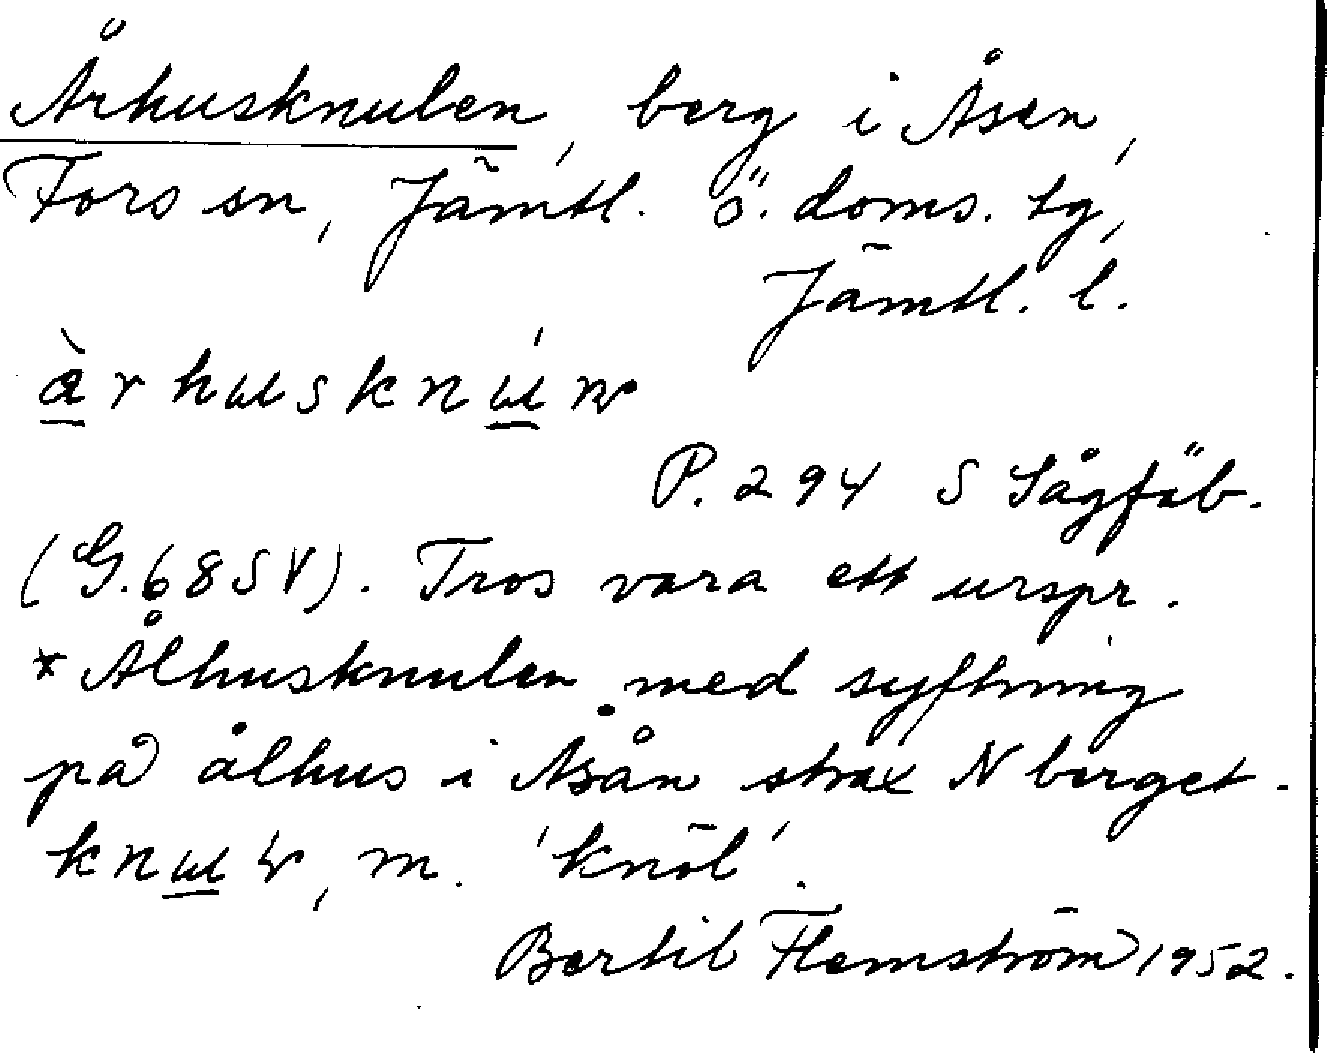 Århusknulen, berg i Åsen,
Fors sn, Jämtl. ö. doms. tg,
Jämtl. l.
P. 294 S Sågfäb.
(G. 68 SV). Tros vara ett urspr.
* Ålhusknulen med syftning
på ålhus i Åsån strax N berget.
m. 'knöl'.
Bertil Flemström 1952.